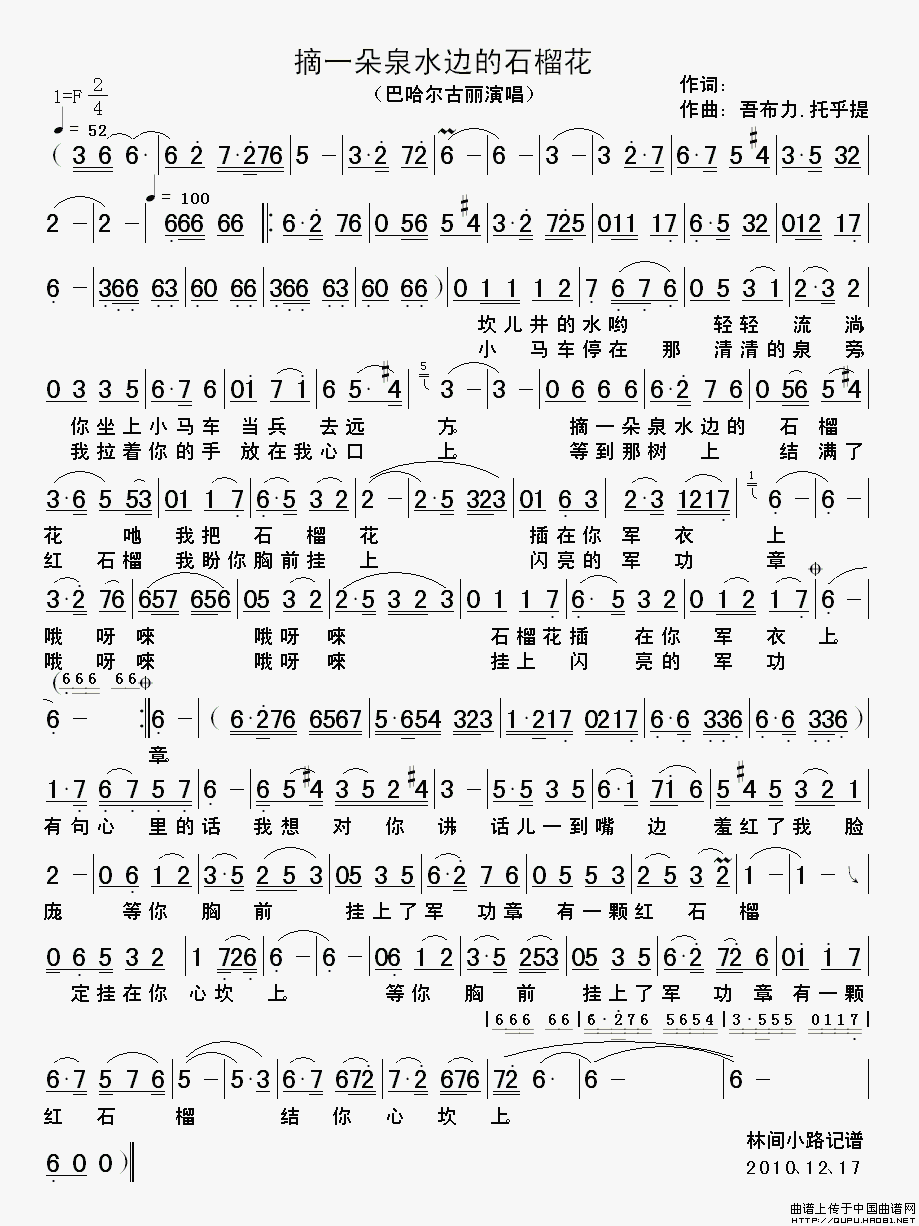 摘一朵泉水边的石榴花
（巴哈尔古丽演唱）
作词：
作曲：吾布力.托乎提
1=F 2/4
♩= 52
（ 3 6 6· | 6 2 7·276 | 5 － | 3·2 72 | 6 － | 6 － | 3 － | 3 2·7 | 6·7 5 #4 | 3·5 32 |
♩= 100
2 － | 2 － | 666 66 ‖: 6·2 76 | 0 56 5 #4 | 3·2 725 | 011 17 | 6·5 32 | 012 17 |
6 － | 366 63 | 60 66 | 366 63 | 60 66 ） | 0 1 1 1 2 | 7 6 7 6 | 0 5 3 1 | 2·3 2 |
坎儿井的水哟 轻轻 流 淌，
小 马车停在 那 清清的泉 旁，
0 3 3 5 | 6·7 6 | 01 7 1 | 6 5·#4 | 5 3 － | 3 － | 0 6 6 6 | 6·2 7 6 | 0 56 5#4 |
你坐上小马车 当兵 去远 方。 摘一朵泉水边的 石 榴
我拉着你的手 放在我心口 上。 等到那树 上 结 满了
3·6 5 53 | 01 1 7 | 6·5 3 2 | 2 － | 2·5 323 | 01 6 3 | 2·3 1217 | 1 6 － | 6 － |
花 吔 我把 石 榴 花 插在你 军 衣 上
红 石榴 我盼你胸前挂 上 闪亮的 军 功 章
3·2 76 | 657 656 | 05 3 2 | 2·5 3 2 3 | 0 1 1 7 | 6· 5 3 2 | 0 1 2 1 7 | 6 －
哦 呀 唻 哦呀 唻 石榴花插 在你 军 衣 上。
哦 呀 唻 哦呀 唻 挂上 闪 亮的 军 功
（666 66
6 － :‖ 6 － | （ 6·276 6567 | 5·654 323 | 1·217 0217 | 6·6 336 | 6·6 336 ） |
章。
1·7 6 7 5 7 | 6 － | 6 5 #4 | 3 5 2 #4 | 3 － | 5·5 3 5 | 6·1 71 6 | 5 #4 5 | 3 2 1 |
有句心 里的话 我想 对 你 讲， 话儿一到嘴 边 羞红了我 脸
2 － | 0 6 1 2 | 3·5 2 5 3 | 05 3 5 | 6·2 7 6 | 0 5 5 3 | 2 5 3 2 | 1 － | 1 － |
庞， 等你 胸 前 挂上了军 功章， 有一颗红 石 榴
0 6 5 3 2 | 1 726 | 6 － | 6 － | 06 1 2 | 3·5 253 | 05 3 5 | 6·2 72 6 | 01 1 7 |
定挂在你 心坎 上。 等你 胸 前 挂上了军 功 章，有一颗
| 666 66 | 6·276 5654 | 3·555 0117 |
6·7 5 7 6 | 5 － | 5·3 | 6·7 672 | 7·2 676 | 72 6· | 6 － | 6 － |
红 石 榴 结 你 心 坎 上。
6 0 0 ）‖
林间小路记谱
2010、12、17
曲谱上传于中国曲谱网
HTTP://QUPU.HAO81.NET